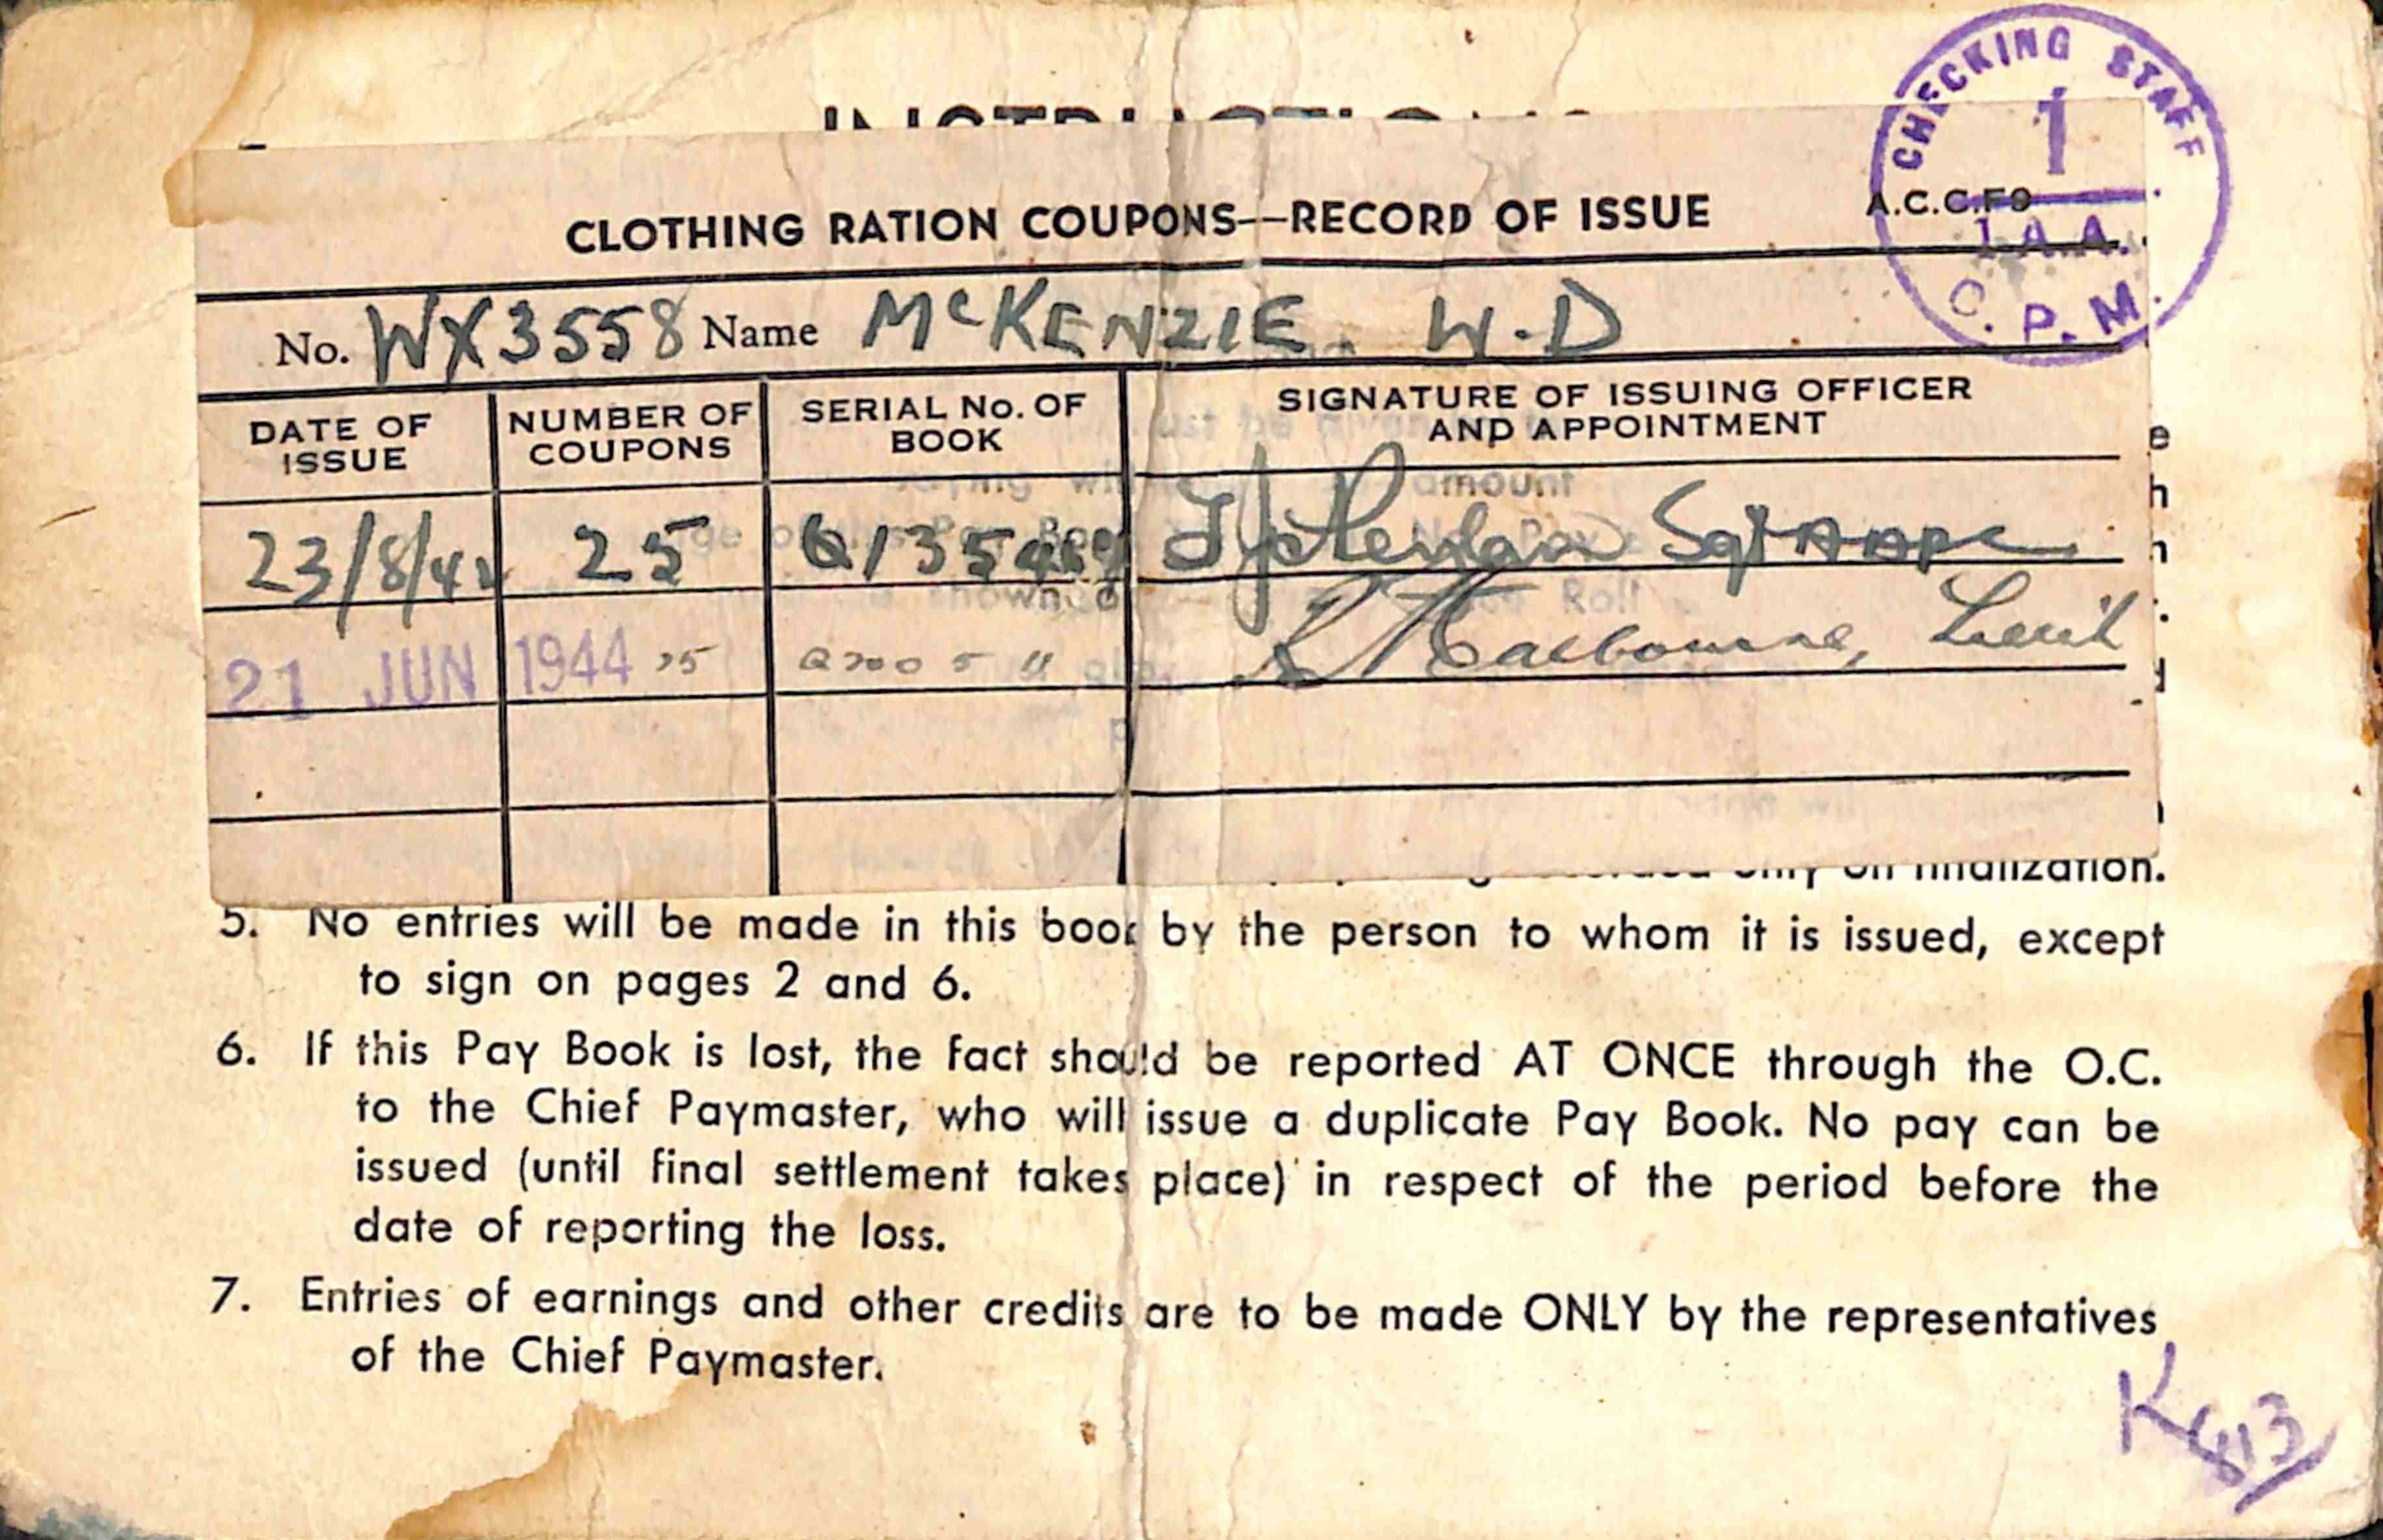 CHECKING STAFF
1
1 A.A.
C. P. M.
CLOTHING RATION COUPONS--RECORD OF ISSUE
A.C.C.F9
No. WX3558 Name McKENZIE W.D
DATE OF ISSUE NUMBER OF COUPONS SERIAL No. OF BOOK SIGNATURE OF ISSUING OFFICER AND APPOINTMENT
23/8/42 25
21 JUN 1944 25 Lieut
only on finalization.
5. No entries will be made in this book by the person to whom it is issued, except
to sign on pages 2 and 6.
6. If this Pay Book is lost, the fact should be reported AT ONCE through the O.C.
to the Chief Paymaster, who will issue a duplicate Pay Book. No pay can be
issued (until final settlement takes place) in respect of the period before the
date of reporting the loss.
7. Entries of earnings and other credits are to be made ONLY by the representatives
of the Chief Paymaster.